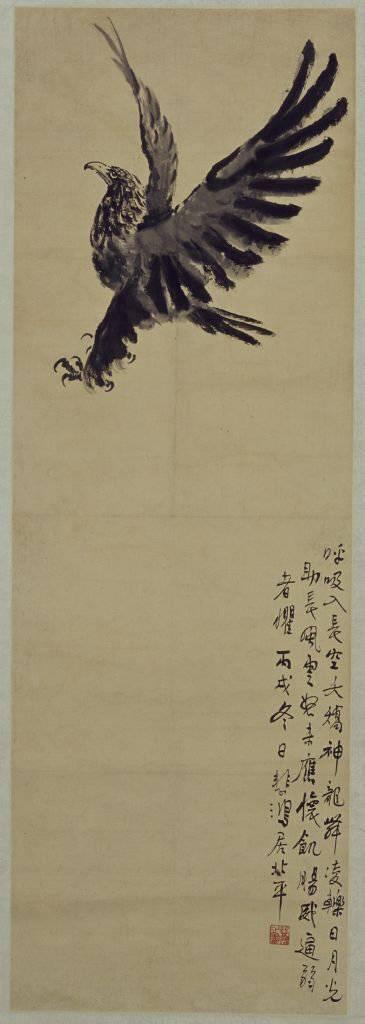 呼吸入長空夭矯神龍舞凌轢日月光
助長風雲怒未應懷飢腸戚逼弱
者懼 丙戌冬日悲鴻居北平